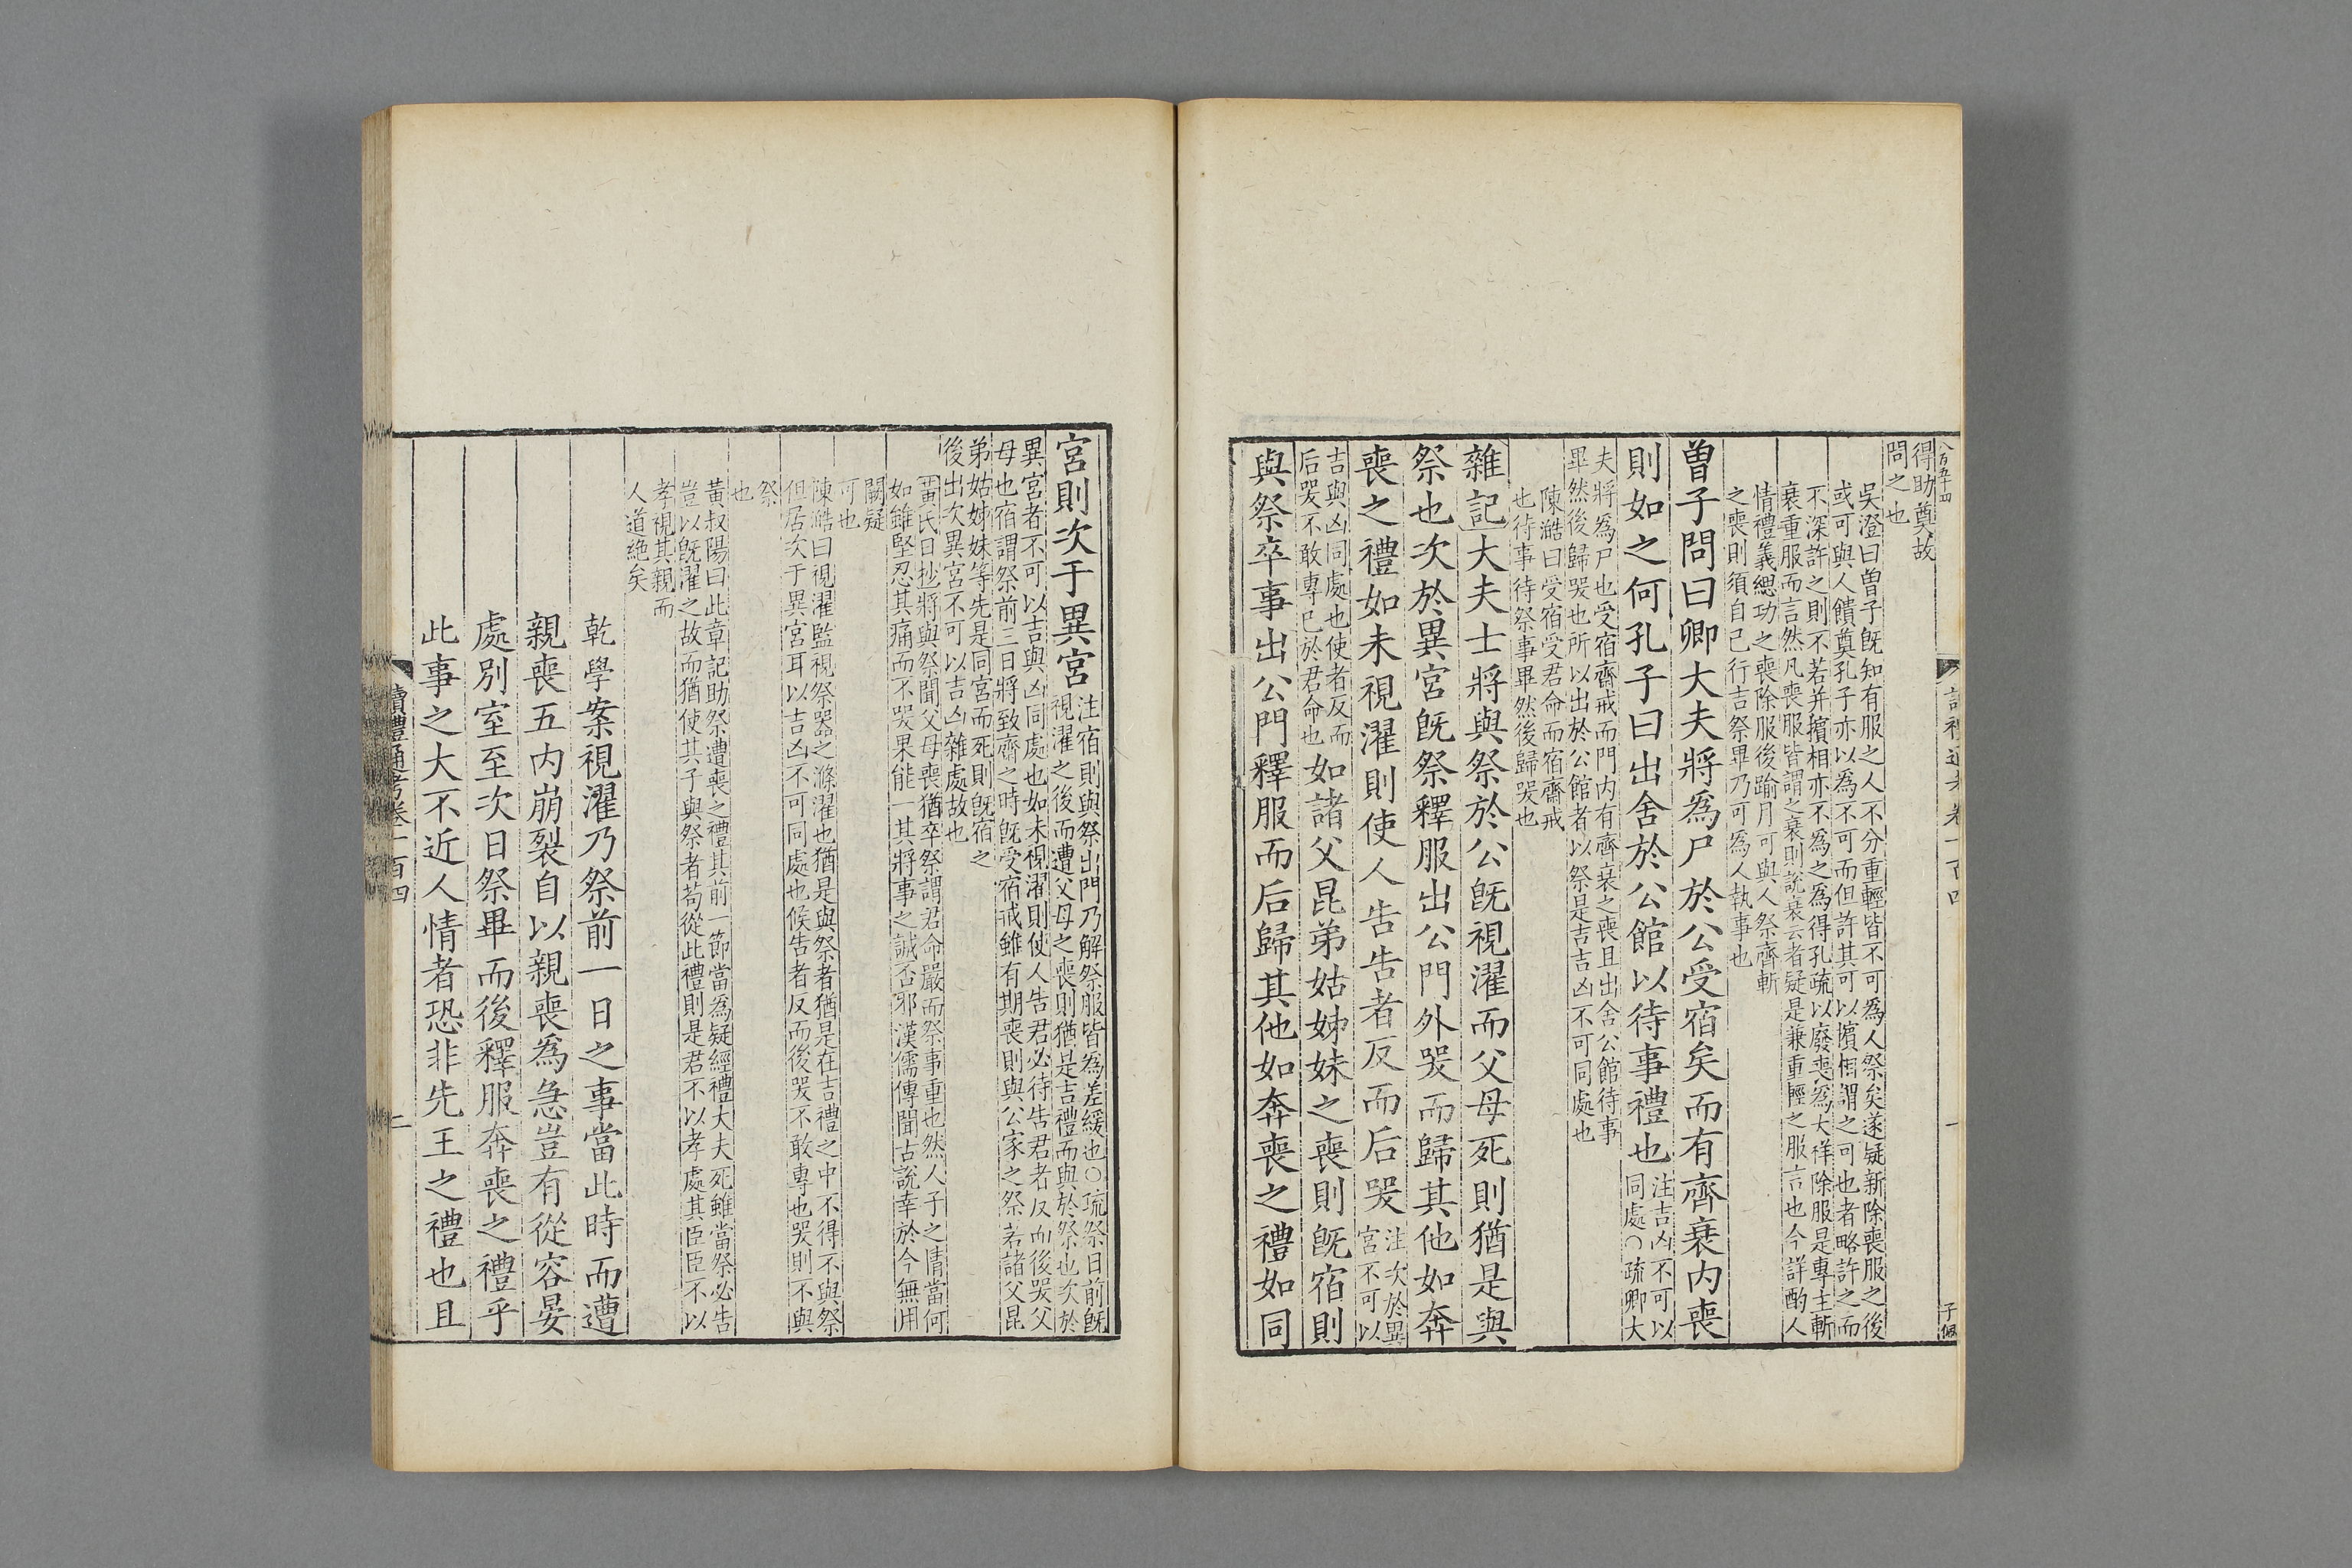 八百五十四
讀禮通考卷一百四
一
子佩
得助奠故
問之也
吳澄曰曾子既知有服之人不分重輕皆不可為人祭矣遂疑新除喪服之後
或可與人饋奠孔子亦以為不可而但許其可以擯相謂之可也者略許之而
不深許之則不若并擯相亦不為之為得孔疏以廢喪為大祥除服是專主斬
衰重服而言然凡喪服皆謂之衰則說衰云者疑是兼重輕之服言也今詳酌人
情禮義緦功之喪除服後踰月可與人祭齊斬
之喪則須自己行吉祭畢乃可為人執事也
曾子問曰卿大夫將為尸於公受宿矣而有齊衰内喪
則如之何孔子曰出舍於公館以待事禮也
注吉凶不可以
同處○疏卿大
夫將為尸也受宿齊戒而門内有齊衰之喪且出舍公館待事
畢然後歸哭也所以出於公館者以祭是吉吉凶不可同處也
陳澔曰受宿受君命而宿齊戒
也待事待祭事畢然後歸哭也
雜記大夫士將與祭於公既視濯而父母死則猶是與
祭也次於異宮既祭釋服出公門外哭而歸其他如奔
喪之禮如未視濯則使人告告者反而后哭
注次於異
宮不可以
吉與凶同處也使者反而
后哭不敢專已於君命也
如諸父昆弟姑姊妹之喪則既宿則
與祭卒事出公門釋服而后歸其他如奔喪之禮如同
宮則次于異宮
注宿則與祭出門乃解祭服皆為差緩也○疏祭日前既
視濯之後而遭父母之喪則猶是吉禮而與於祭也次於
異宮者不可以吉與凶同處也如未視濯則使人告君必待告君者反而後哭父
母也宿謂祭前三日將致齊之時既受宿戒雖有期喪則與公家之祭若諸父昆
弟姑姊妹等先是同宮而死則既宿之
後出次異宮不可以吉凶雜處故也
黃氏日抄將與祭聞父母喪猶卒祭謂君命嚴而祭事重也然人子之情當何
如雖堅忍其痛而不哭果能一其將事之誠否邪漢儒傳聞古說幸於今無用
闕疑
可也
陳澔曰視濯監視祭器之滌濯也猶是與祭者猶是在吉禮之中不得不與祭
但居次于異宮耳以吉凶不可同處也候告者反而後哭不敢專也哭則不與
祭
也
黃叔陽曰此章記助祭遭喪之禮其前一節當為疑經禮大夫死雖當祭必告
豈以既濯之故而猶使其子與祭者苟從此禮則是君不以孝處其臣臣不以
孝視其親而
人道絶矣
乾學案視濯乃祭前一日之事當此時而遭
親喪五内崩裂自以親喪為急豈有從容晏
處別室至次日祭畢而後釋服奔喪之禮乎
此事之大不近人情者恐非先王之禮也且
讀禮通考卷一百四
二